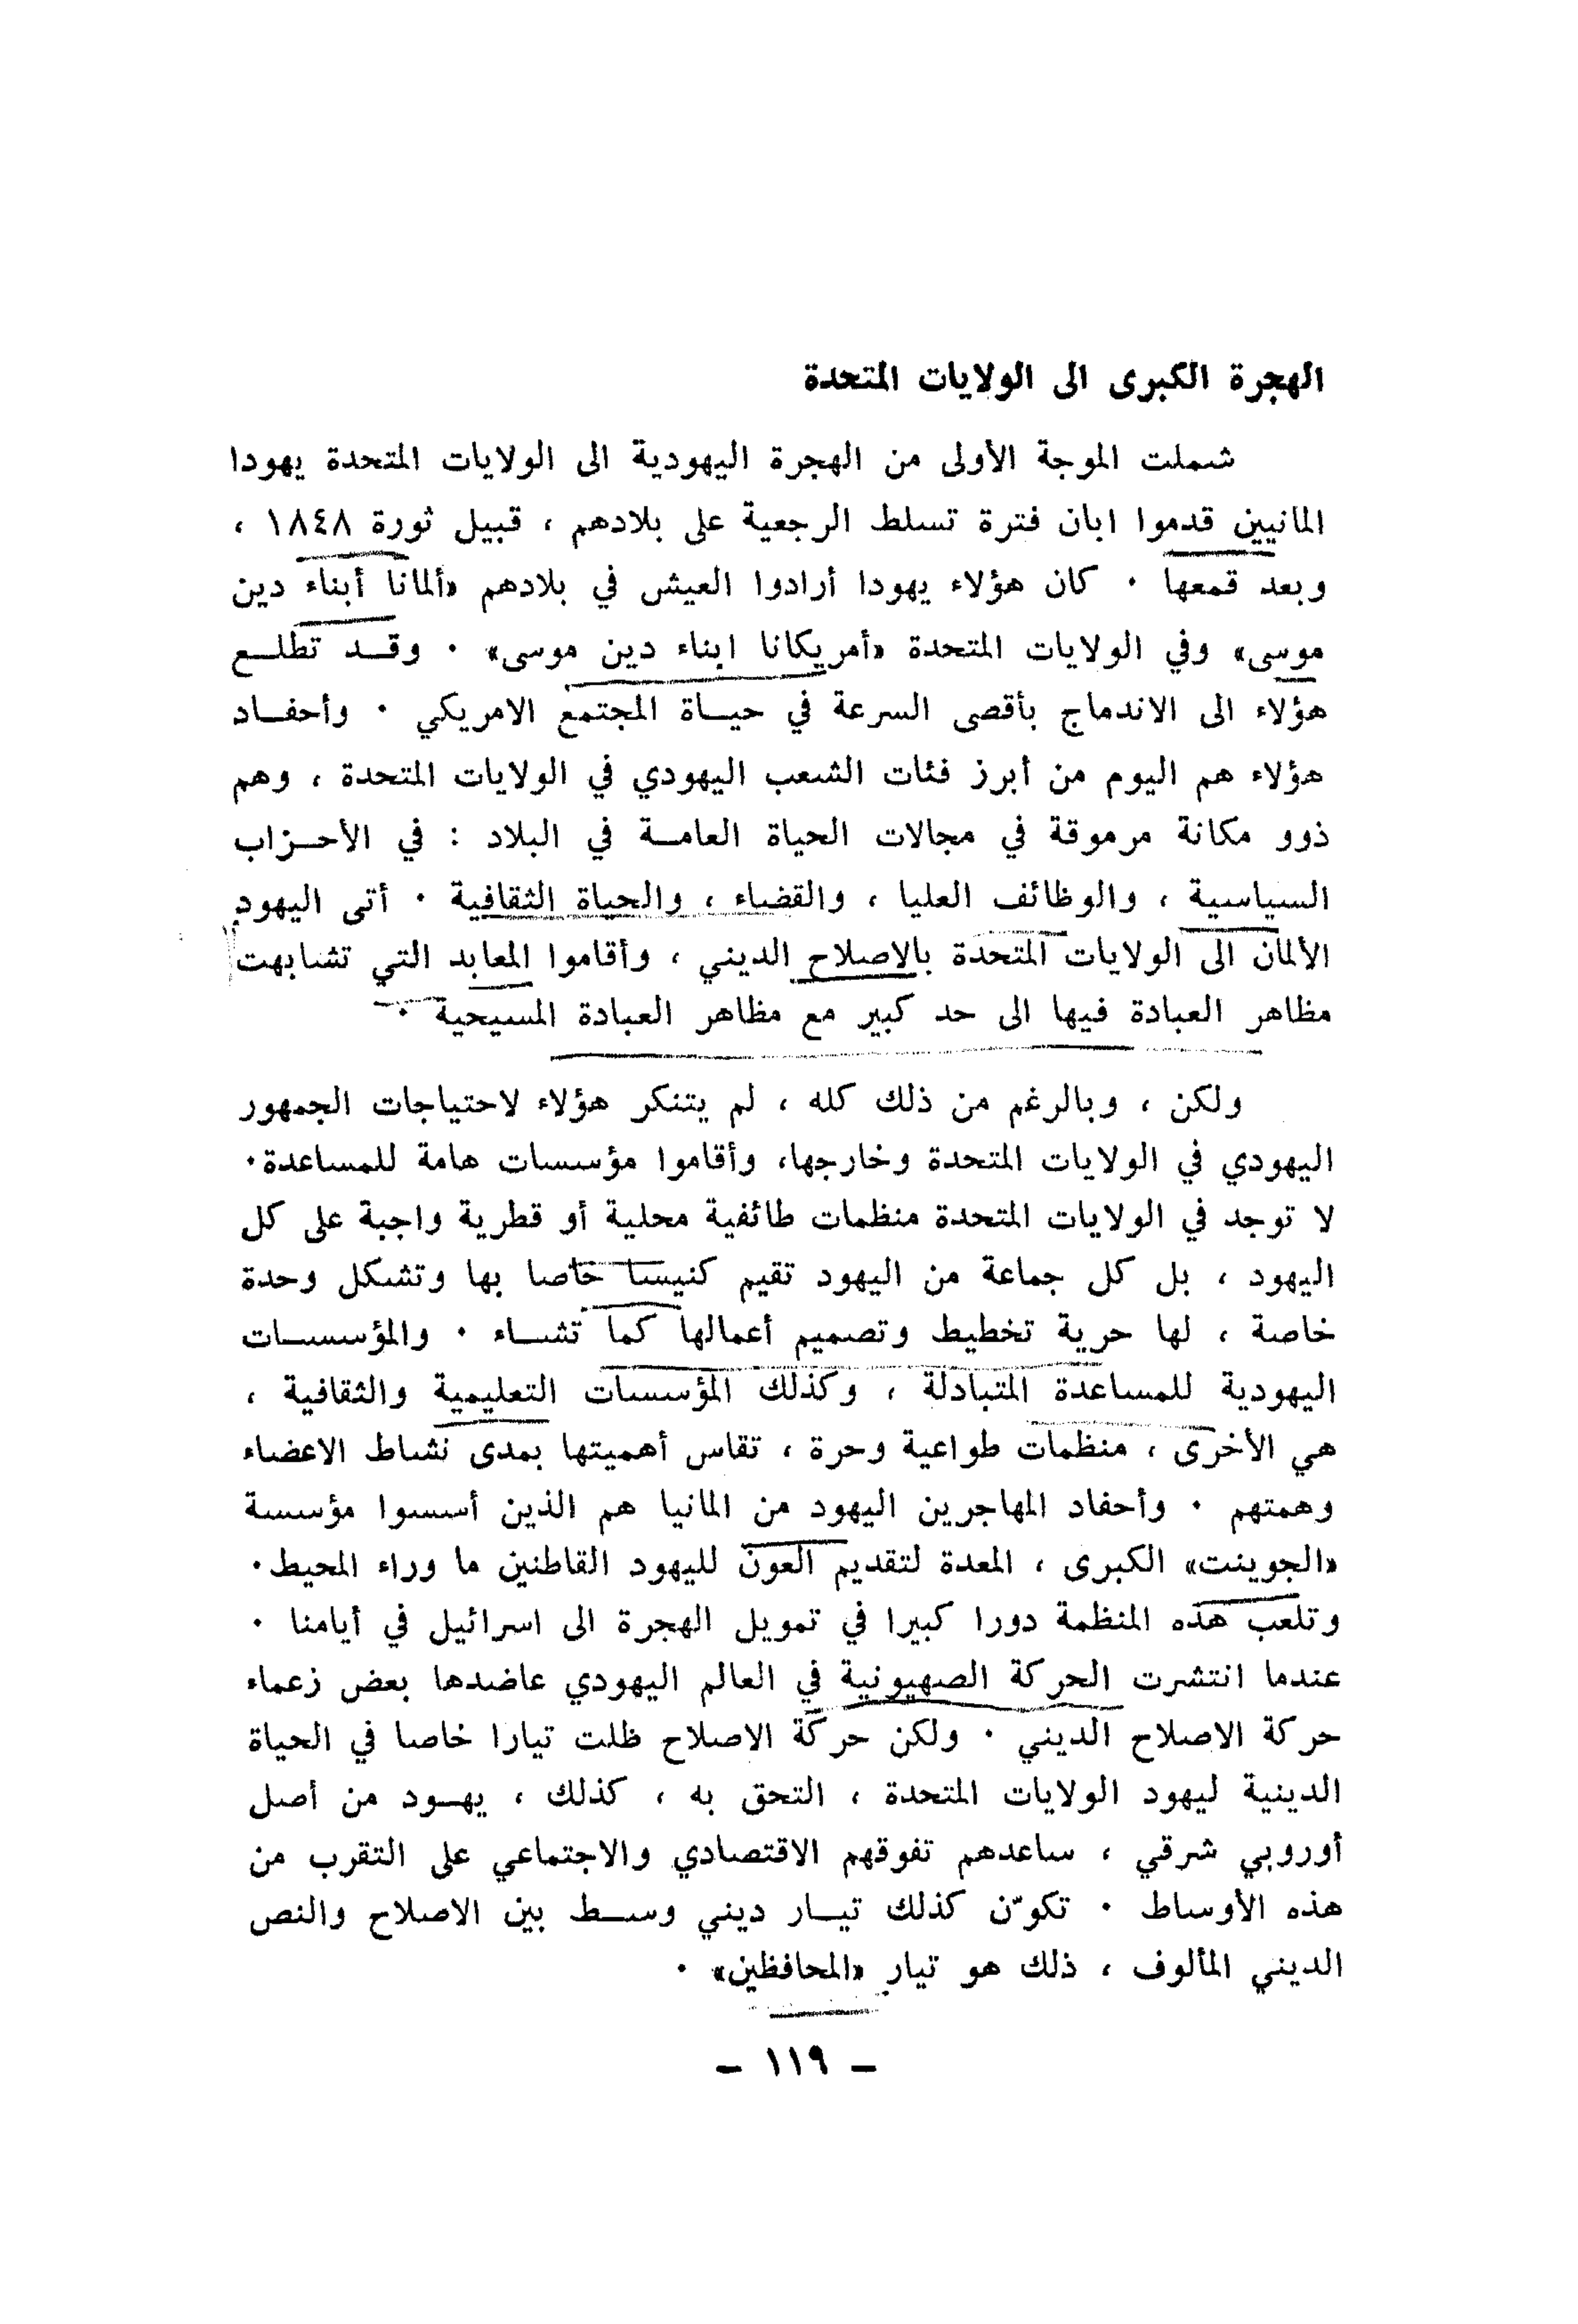 الهجرة الكبرى الى الولايات المتحدة
شملت الموجة الأولى من الهجرة اليهودية الى الولايات المتحدة يهودا
المانيين قدموا ابان فترة تسلط الرجعية على بلادهم ، قبيل ثورة ١٨٤٨ ،
وبعد قمعها ٠ كان هؤلاء يهودا أرادوا العيش في بلادهم «ألمانا أبناء دين
موسى» وفي الولايات المتحدة «أمريكانا ابناء دين موسى» ٠ وقـد تطلـع
هؤلاء الى الاندماج بأقصى السرعة في حيـاة المجتمع الامريكي ٠ وأحفـاد
هؤلاء هم اليوم من أبرز فئات الشعب اليهودي في الولايات المتحدة ، وهم
ذوو مكانة مرموقة في مجالات الحياة العامـة في البلاد : في الأحـزاب
السياسية ، والوظائف العليا ، والقضاء ، والحياة الثقافية ٠ أتى اليهود
الألمان الى الولايات المتحدة بالاصلاح الديني ، وأقاموا المعابد التي تشابهت
مظاهر العبادة فيها الى حد كبير مع مظاهر العبادة المسيحية ٠
ولكن ، وبالرغم من ذلك كله ، لم يتنكر هؤلاء لاحتياجات الجمهور
اليهودي في الولايات المتحدة وخارجها، وأقاموا مؤسسات هامة للمساعدة٠
لا توجد في الولايات المتحدة منظمات طائفية محلية أو قطرية واجبة على كل
اليهود ، بل كل جماعة من اليهود تقيم كنيسا خاصا بها وتشكل وحدة
خاصة ، لها حرية تخطيط وتصميم أعمالها كما تشـاء ٠ والمؤسسـات
اليهودية للمساعدة المتبادلة ، وكذلك المؤسسات التعليمية والثقافية ،
هي الأخرى ، منظمات طواعية وحرة ، تقاس أهميتها بمدى نشاط الاعضاء
وهمتهم ٠ وأحفاد المهاجرين اليهود من المانيا هم الذين أسسوا مؤسسة
«الجوينت» الكبرى ، المعدة لتقديم العون لليهود القاطنين ما وراء المحيط٠
وتلعب هذه المنظمة دورا كبيرا في تمويل الهجرة الى اسرائيل في أيامنا ٠
عندما انتشرت الحركة الصهيونية في العالم اليهودي عاضدها بعض زعماء
حركة الاصلاح الديني ٠ ولكن حركة الاصلاح ظلت تيارا خاصا في الحياة
الدينية ليهود الولايات المتحدة ، التحق به ، كذلك ، يهـود من أصل
أوروبي شرقي ، ساعدهم تفوقهم الاقتصادي والاجتماعي على التقرب من
هذه الأوساط ٠ تكوّن كذلك تيـار ديني وسـط بين الاصلاح والنص
الديني المألوف ، ذلك هو تيار «المحافظين» ٠
– ١١٩ –